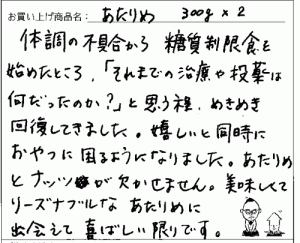 お買い上げ商品名: あたりめ 300g×2
体調の不具合から 糖質制限食を
始めたところ、「それまでの治療や投薬は
何だったのか?」と思う程、めきめき
回復してきました。嬉しいと同時に
おやつに困るようになりました。あたりめ
とナッツが欠かせません。美味しくて
リーズナブルな あたりめに
出会えて 喜ばしい限りです。